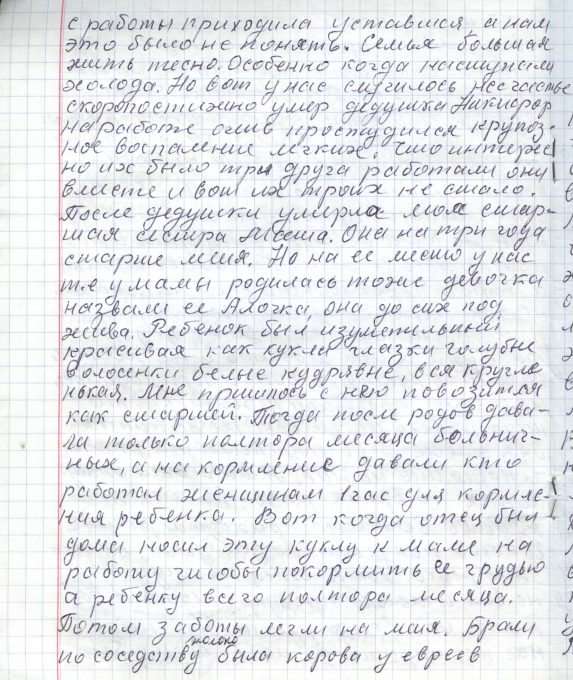 с работы приходила уставшися, а нам
это было не понять. Семья большая
жить тесно. Особенно когда наступали
холода. Но вот у нас случилось несчастье
скоропостижно умер дедушка Никифор
на работе очив простудился крупоз-
ное воспаление легких. Что интерес
но их было три друга работали они
вместе и вот их троих не стало.
После дедушки умирла моя стар-
шая сестра Маша. Она на три года
старше меня. Но на ее место у нас
те у мамы родилась тоже девочка
назвали ее Алочка, она до сих под
жива. Ребенок был изумительный
красивая как кукла глазки голубые
волосенки белые кудрявые, вся кругле
нькая. Мне пришлось с нею повозится
как старшей. Тогда после родов дава-
ли только полтора месяца больнич-
ных, а на кормление давали кто
работал женщинам 1 час для кормле-
ния ребенка. Вот когда отец был
дома носил эту куклу к маме на
работу чтобы покормить ее грудью
а ребенку всего полтора месяца.
Потом заботы легли на меня. Брали
молоко
по соседству была корова у евреев